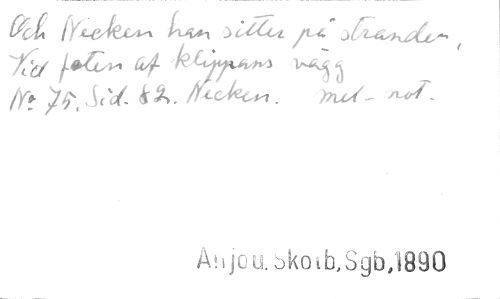 Och Necken han sitter på stranden,
Vid foten af klippans vägg
No 75. Sid. 82. Necken. mel- not.
Anjou, Skolb, Sgb, 1890